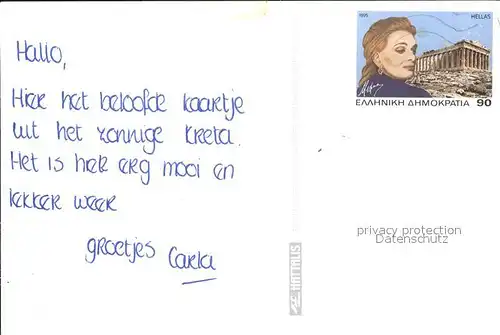 Hallo,
Hier het beloofde kaartje
uit het zonnige Kreta.
Het is hier erg mooi en
lekker weer
groetjes Carla
1995
HELLAS
ΕΛΛΗΝΙΚΗ ΔΗΜΟΚΡΑΤΙΑ 90
privacy protection
Datenschutz
HAITALIS